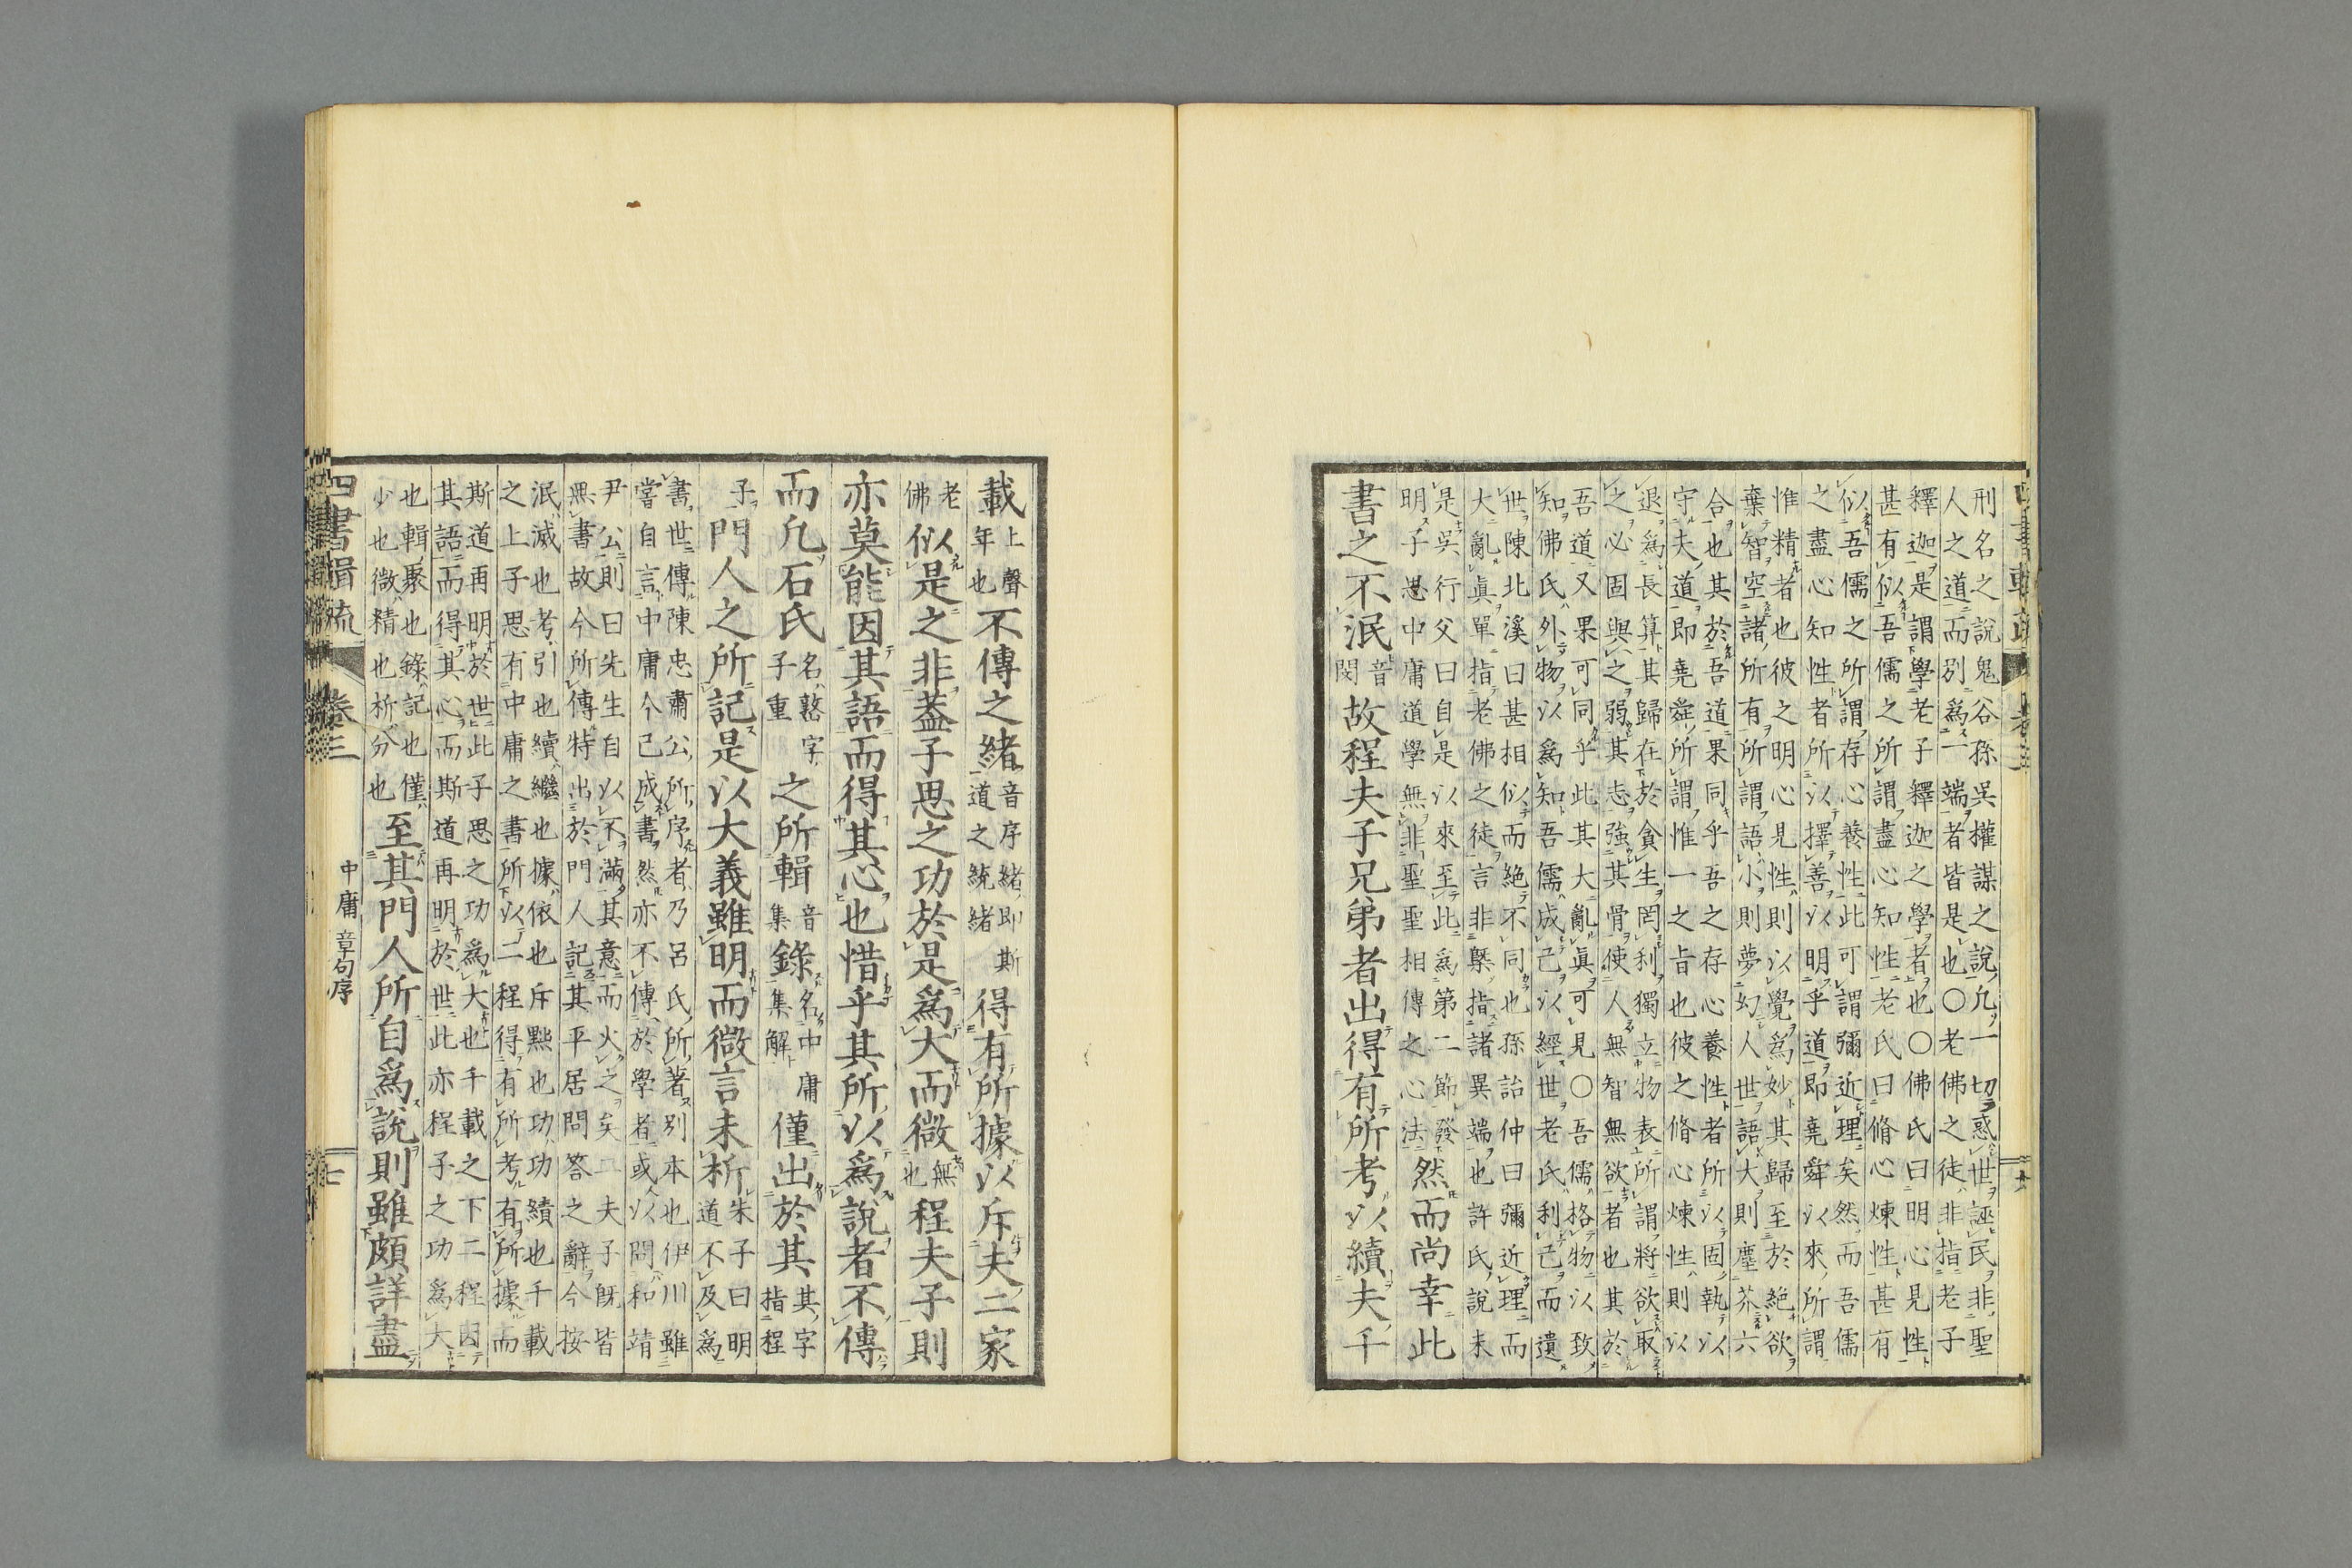 刑名之說鬼谷孫吳權謀之說凡一切惑世誣民非聖
人之道而別爲一端者皆是也〇老佛之徒非指老子
釋迦是謂學老子釋迦之學者也〇佛氏曰明心見性
甚有似吾儒之所謂盡心知性老氏曰脩心煉性甚有
似吾儒之所謂存心養性此可謂彌近理矣然而吾儒
之盡心知性者所以擇善以明乎道即堯舜以來所謂
惟精者也彼之明心見性則以覺爲妙其歸至於絕欲
棄智空諸所有所謂語小則夢幻人世語大則塵芥六
合也其於吾道果同乎吾之存心養性者所以固執以
守夫道即堯舜所謂惟一之旨也彼之脩心煉性則以
退爲長算其歸在於貪生罔利獨立物表所謂將欲取
之必固與之弱其志強其骨使人無智無欲者也其於
吾道又果可同乎此其大亂眞可見〇吾儒格物以致
知佛氏外物以爲知吾儒成己以經世老氏利己而遺
世陳北溪曰甚相似而絕不同也孫詒仲曰彌近理而
大亂眞單指老佛之徒言非槩指諸異端也許氏說未
是吳行父曰自是以來至此爲第二節發
明子思中庸道學無非聖聖相傳之心法
然而尚幸此
書之不泯音閔故程夫子兄弟者出得有所考以續夫千
載上聲年也不傳之緒音序緒即斯道之統緒得有所據以斥夫二家
老佛似是之非蓋子思之功於是爲大而微無也程夫子則
亦莫能因其語而得其心也惜乎其所以爲說者不傳
而凡石氏名𡼖字子重之所輯音集錄名中庸集解僅出於其其字指程
子門人之所記是以大義雖明而微言未析朱子曰明道不及爲
書世傳陳忠肅公所序者乃呂氏所著別本也伊川雖
嘗自言中庸今已成書然亦不傳於學者或以問和靖
尹公則曰先生自以不滿其意而火之矣二夫子旣皆
無書故今所傳特出於門人記其平居問答之辭今按
泯滅也考引也續繼也據依也斥黜也功功績也千載
之上子思有中庸之書所以二程得有所考有所據而
斯道再明於世此子思之功爲大也千載之下二程因
其語而得其心而斯道再明於世此亦程子之功爲大
也輯聚也錄記也僅
少也微精也析分也
至其門人所自爲說則雖頗詳盡
四書輯疏 卷三 中庸章句序 七